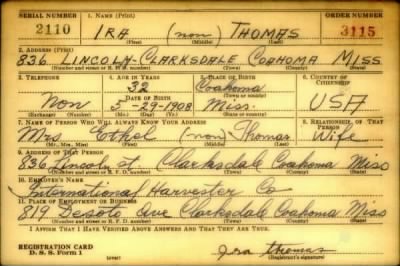 SERIAL NUMBER 1. NAME (Print) ORDER NUMBER
2110 IRA (non) THOMAS 3115
(First) (Middle) (Last)
2. ADDRESS (Print)
836 LINCOLN-CLARKSDALE COAHOMA MISS
(Number and street or R. F. D. number) (Town) (County) (State)
3. TELEPHONE 4. AGE IN YEARS 5. PLACE OF BIRTH 6. COUNTRY OF CITIZENSHIP
32 Coahoma
DATE OF BIRTH (Town or county)
Non 5-29-1908 Miss. USA
(Exchange) (Number) (Mo.) (Day) (Yr.) (State or country)
7. NAME OF PERSON WHO WILL ALWAYS KNOW YOUR ADDRESS 8. RELATIONSHIP OF THAT PERSON
Mrs Ethel (non) Thomas Wife
(Mr., Mrs., Miss) (First) (Middle) (Last)
9. ADDRESS OF THAT PERSON
836 Lincoln st Clarksdale Coahoma Miss
(Number and street or R. F. D. number) (Town) (County) (State)
10. EMPLOYER'S NAME
International Harvester Co
11. PLACE OF EMPLOYMENT OR BUSINESS
819 Desoto Ave Clarksdale Coahoma Miss
(Number and street or R. F. D. number) (Town) (County) (State)
I AFFIRM THAT I HAVE VERIFIED ABOVE ANSWERS AND THAT THEY ARE TRUE.
REGISTRATION CARD
D. S. S. Form 1 Ira Thomas
(over) (Registrant's signature)